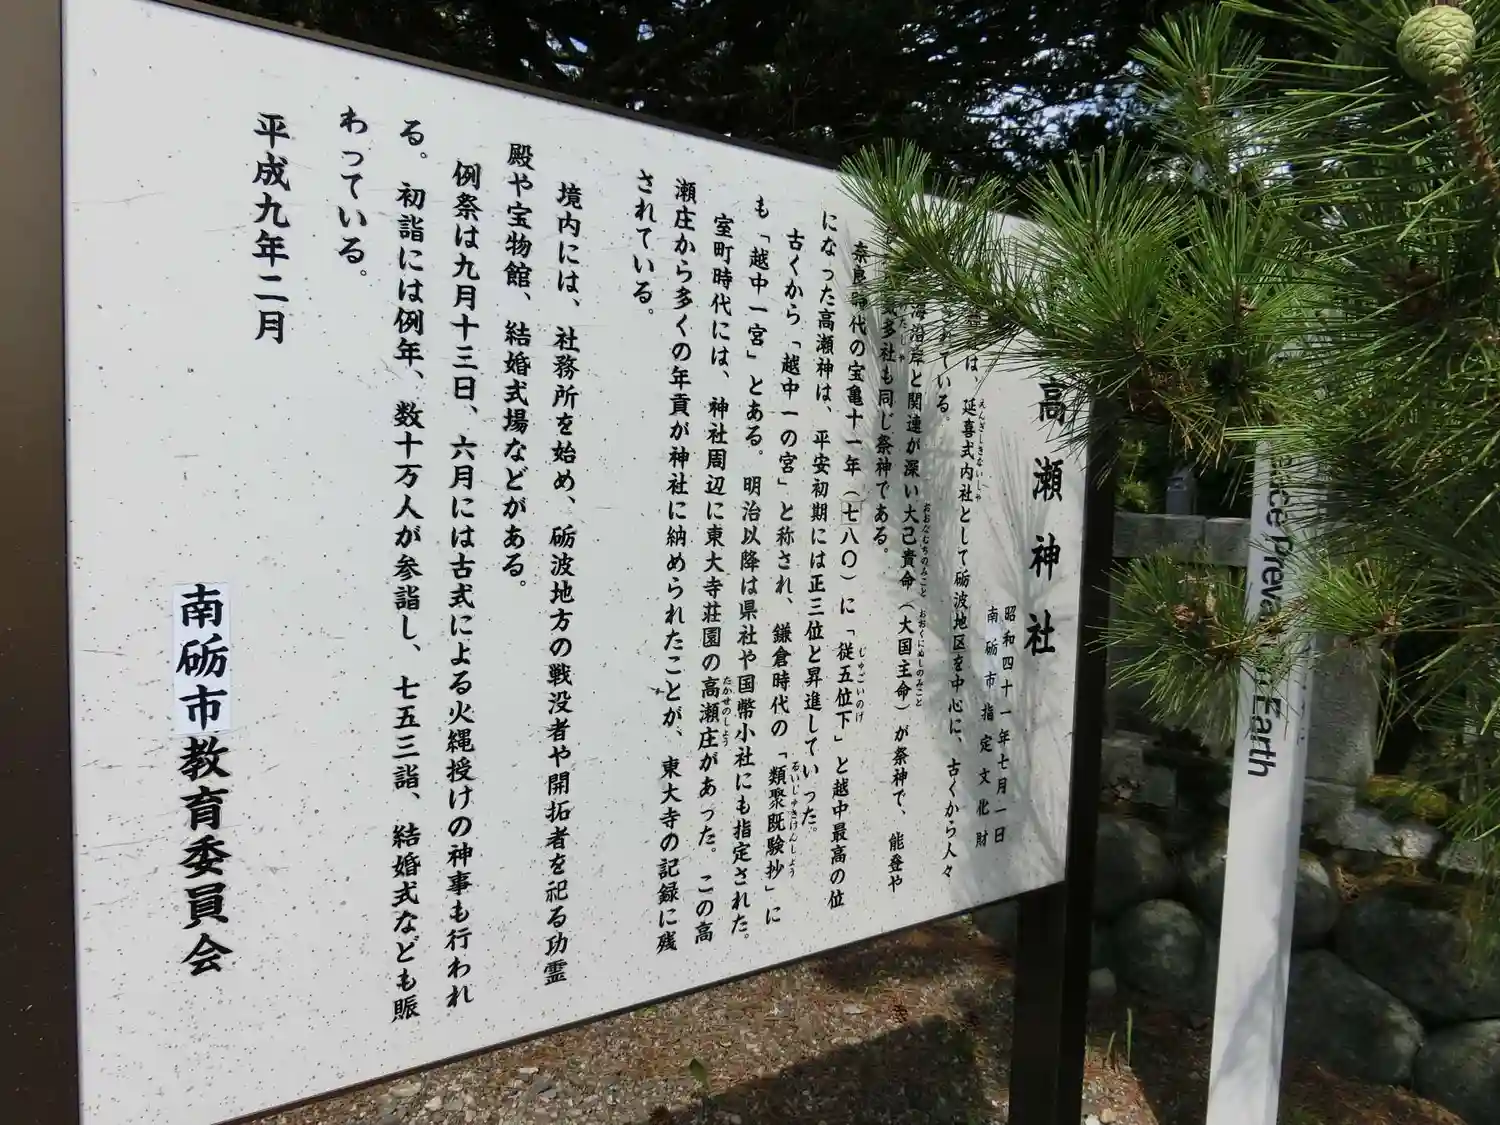 高瀬神社
昭和四十一年七月一日
南砺市指定文化財
は、延喜式内社として砺波地区を中心に、古くから人々
れている。
海沿岸と関連が深い大己貴命（大国主命）が祭神で、能登や
多社も同じ祭神である。
奈良時代の宝亀十一年（七八〇）に「従五位下」と越中最高の位
になった高瀬神は、平安初期には正三位と昇進していった。
古くから「越中一の宮」と称され、鎌倉時代の「類聚既験抄」に
も「越中一宮」とある。明治以降は県社や国幣小社にも指定された。
室町時代には、神社周辺に東大寺荘園の高瀬庄があった。この高
瀬庄から多くの年貢が神社に納められたことが、東大寺の記録に残
されている。
境内には、社務所を始め、砺波地方の戦没者や開拓者を祀る功霊
殿や宝物館、結婚式場などがある。
例祭は九月十三日、六月には古式による火縄授けの神事も行われ
る。初詣には例年、数十万人が参詣し、七五三詣、結婚式なども賑
わっている。
平成九年二月
南砺市教育委員会
えんぎしきないしゃ
おおなむちのみこと
おおくにぬしのみこと
じゅごいのげ
るいじゅきけんしょう
たかせのしょう
Earth